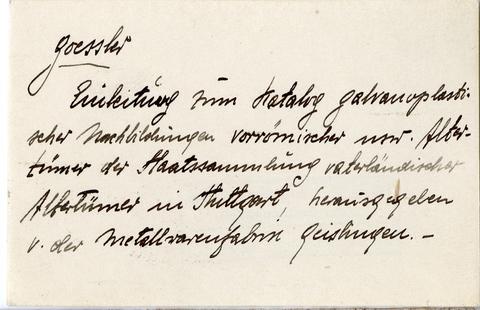 Goessler
Einleitung zum Katalog galvanoplasti-
scher Nachbildungen vorrömischer usw. Alter-
tümer der Staatssammlung vaterländischer
Altertümer in Stuttgart, herausgegeben
v. der Metallwarenfabrik Geislingen. –